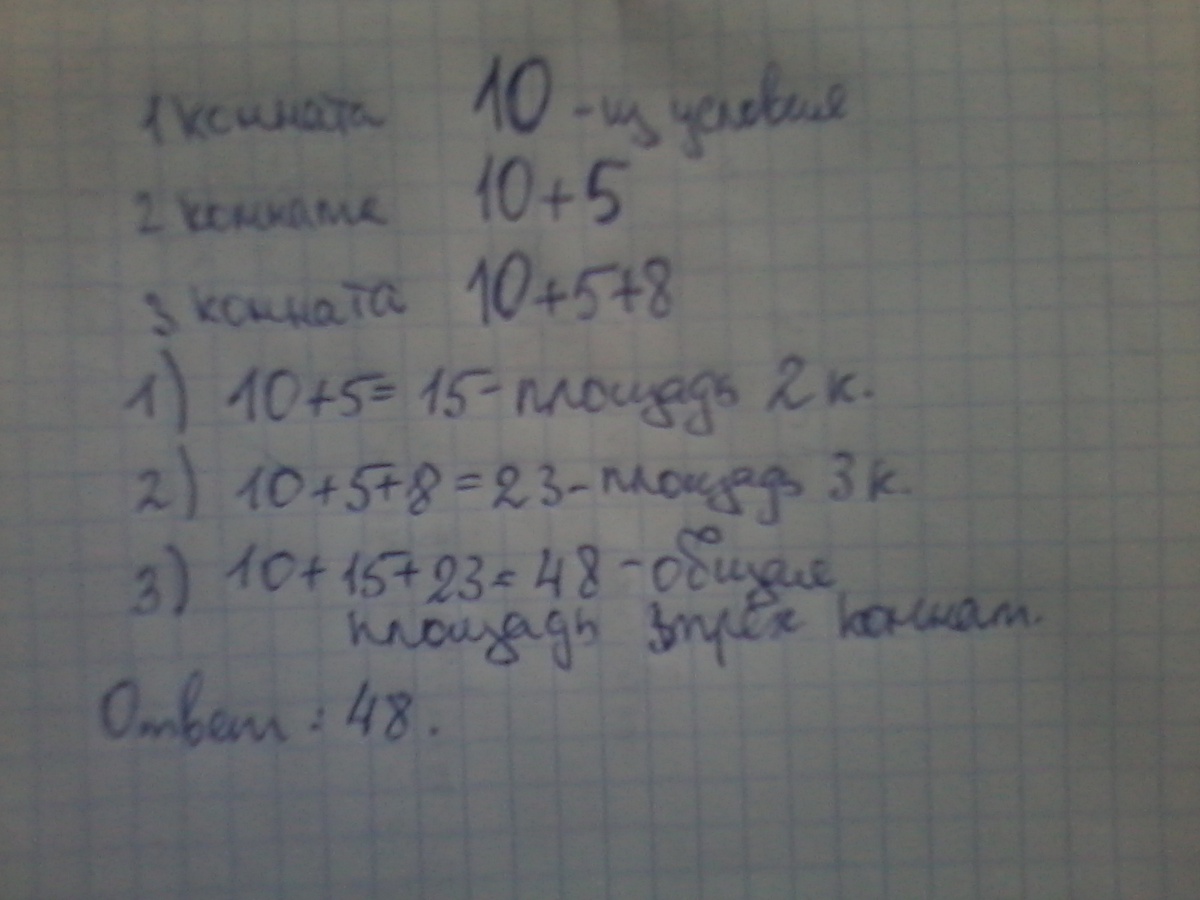 1 комната 10 - из условия
2 комната 10+5
3 комната 10+5+8
1) 10+5= 15- площадь 2 к.
2) 10+5+8=23- площадь 3 к.
3) 10+15+23= 48 - общая
площадь 3трёх комнат.
Ответ: 48.